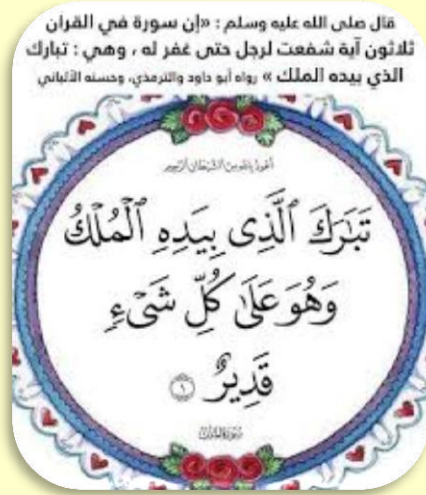 قال صلى الله عليه وسلم : «إن سورة في القرآن
ثلاثون آية شفعت لرجل حتى غفر له ، وهي : تبارك
الذي بيده الملك » رواه أبو داود والترمذي، وحسنه الألباني
أعوذ بالله من الشيطان الرجيم
تَبَٰرَكَ ٱلَّذِى بِيَدِهِ ٱلْمُلْكُ
وَهُوَ عَلَىٰ كُلِّ شَىْءٍ
قَدِيرٌ ۝١
سورة الملك